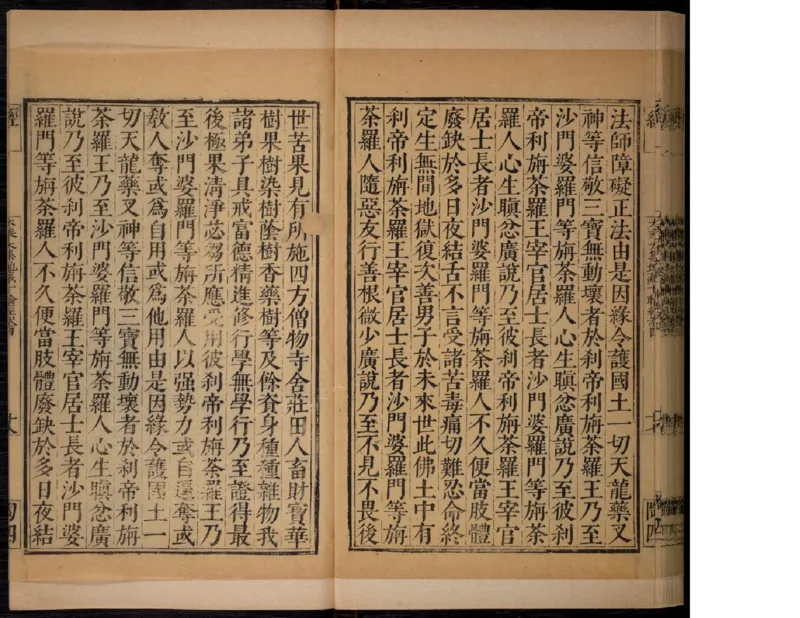 法師障礙正法由是因緣令護國土一切天龍藥叉
神等信敬三寶無動壞者於利帝利旃荼羅王乃至
沙門婆羅門等旃荼羅人心生瞋忿廣說乃至彼剎
帝利旃荼羅王宰官居士長者沙門婆羅門等旃荼
羅人心生瞋忿廣說乃至彼剎帝利旃荼羅王宰官
居士長者沙門婆羅門等旃荼羅人不久便當肢體
廢缺於多日夜結舌不言受諸苦毒痛切難忍命終
定生無間地獄復次善男子於未來世此佛土中有
利帝利旃荼羅王宰官居士長者沙門婆羅門等旃
荼羅人隨惡友行善根微少廣說乃至不見不畏後
世苦果見有所施四方僧物寺舍莊田人畜財寶華
樹果樹染樹蔭樹香藥樹等及餘資身種種雜物我
諸弟子具戒富德精進修行學無學行乃至證得最
後極果清淨苾芻所應受用彼剎帝利旃荼羅王乃
至沙門婆羅門等旃荼羅人以强勢力或自逼奪或
教人奪或爲自用或爲他用由是因緣令護國土一
切天龍藥叉神等信敬三寶無動壞者於利帝利旃
荼羅王乃至沙門婆羅門等旃荼羅人心生瞋忿廣
說乃至彼剎帝利旃荼羅王宰官居士長者沙門婆
羅門等旃荼羅人不久便當肢體廢缺於多日夜結